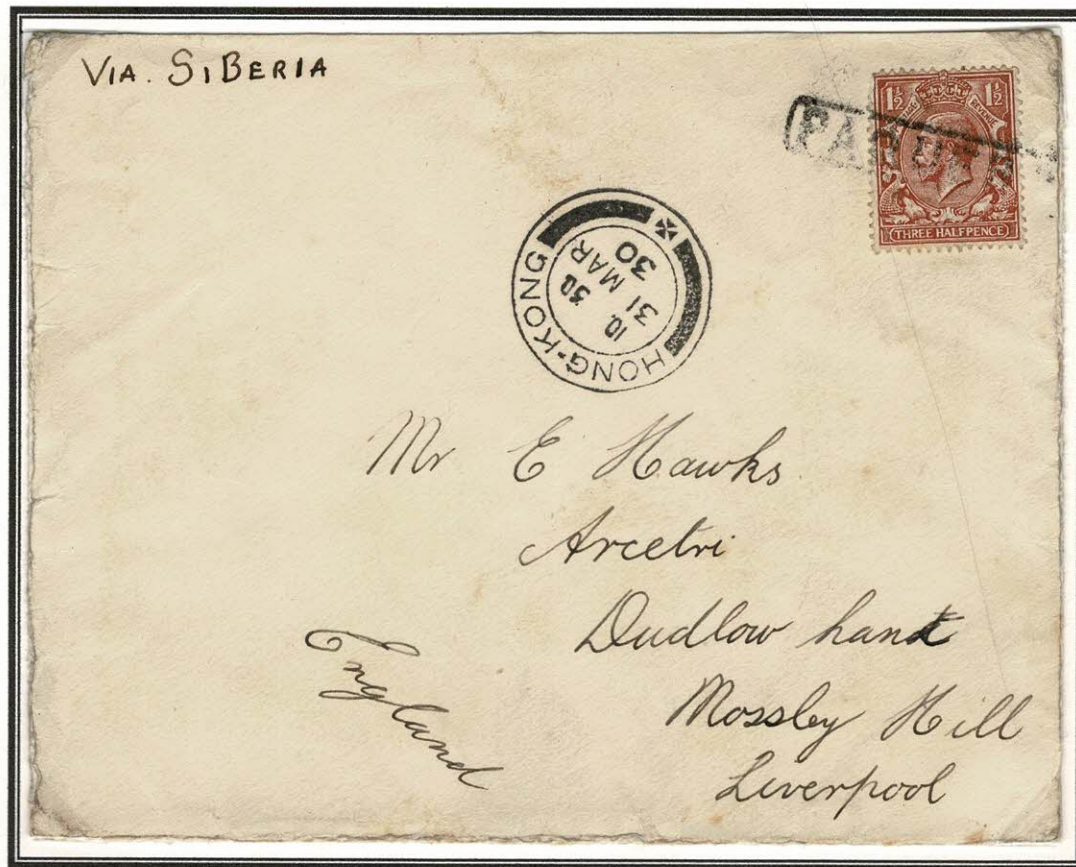 VIA. SIBERIA
1½ 1½
POSTAGE REVENUE
THREE HALFPENCE
HONG-KONG
10 30
31 MAR
30
Mr E Hawks
Arcetri
Dudlow
Mossley Hill
Liverpool
England